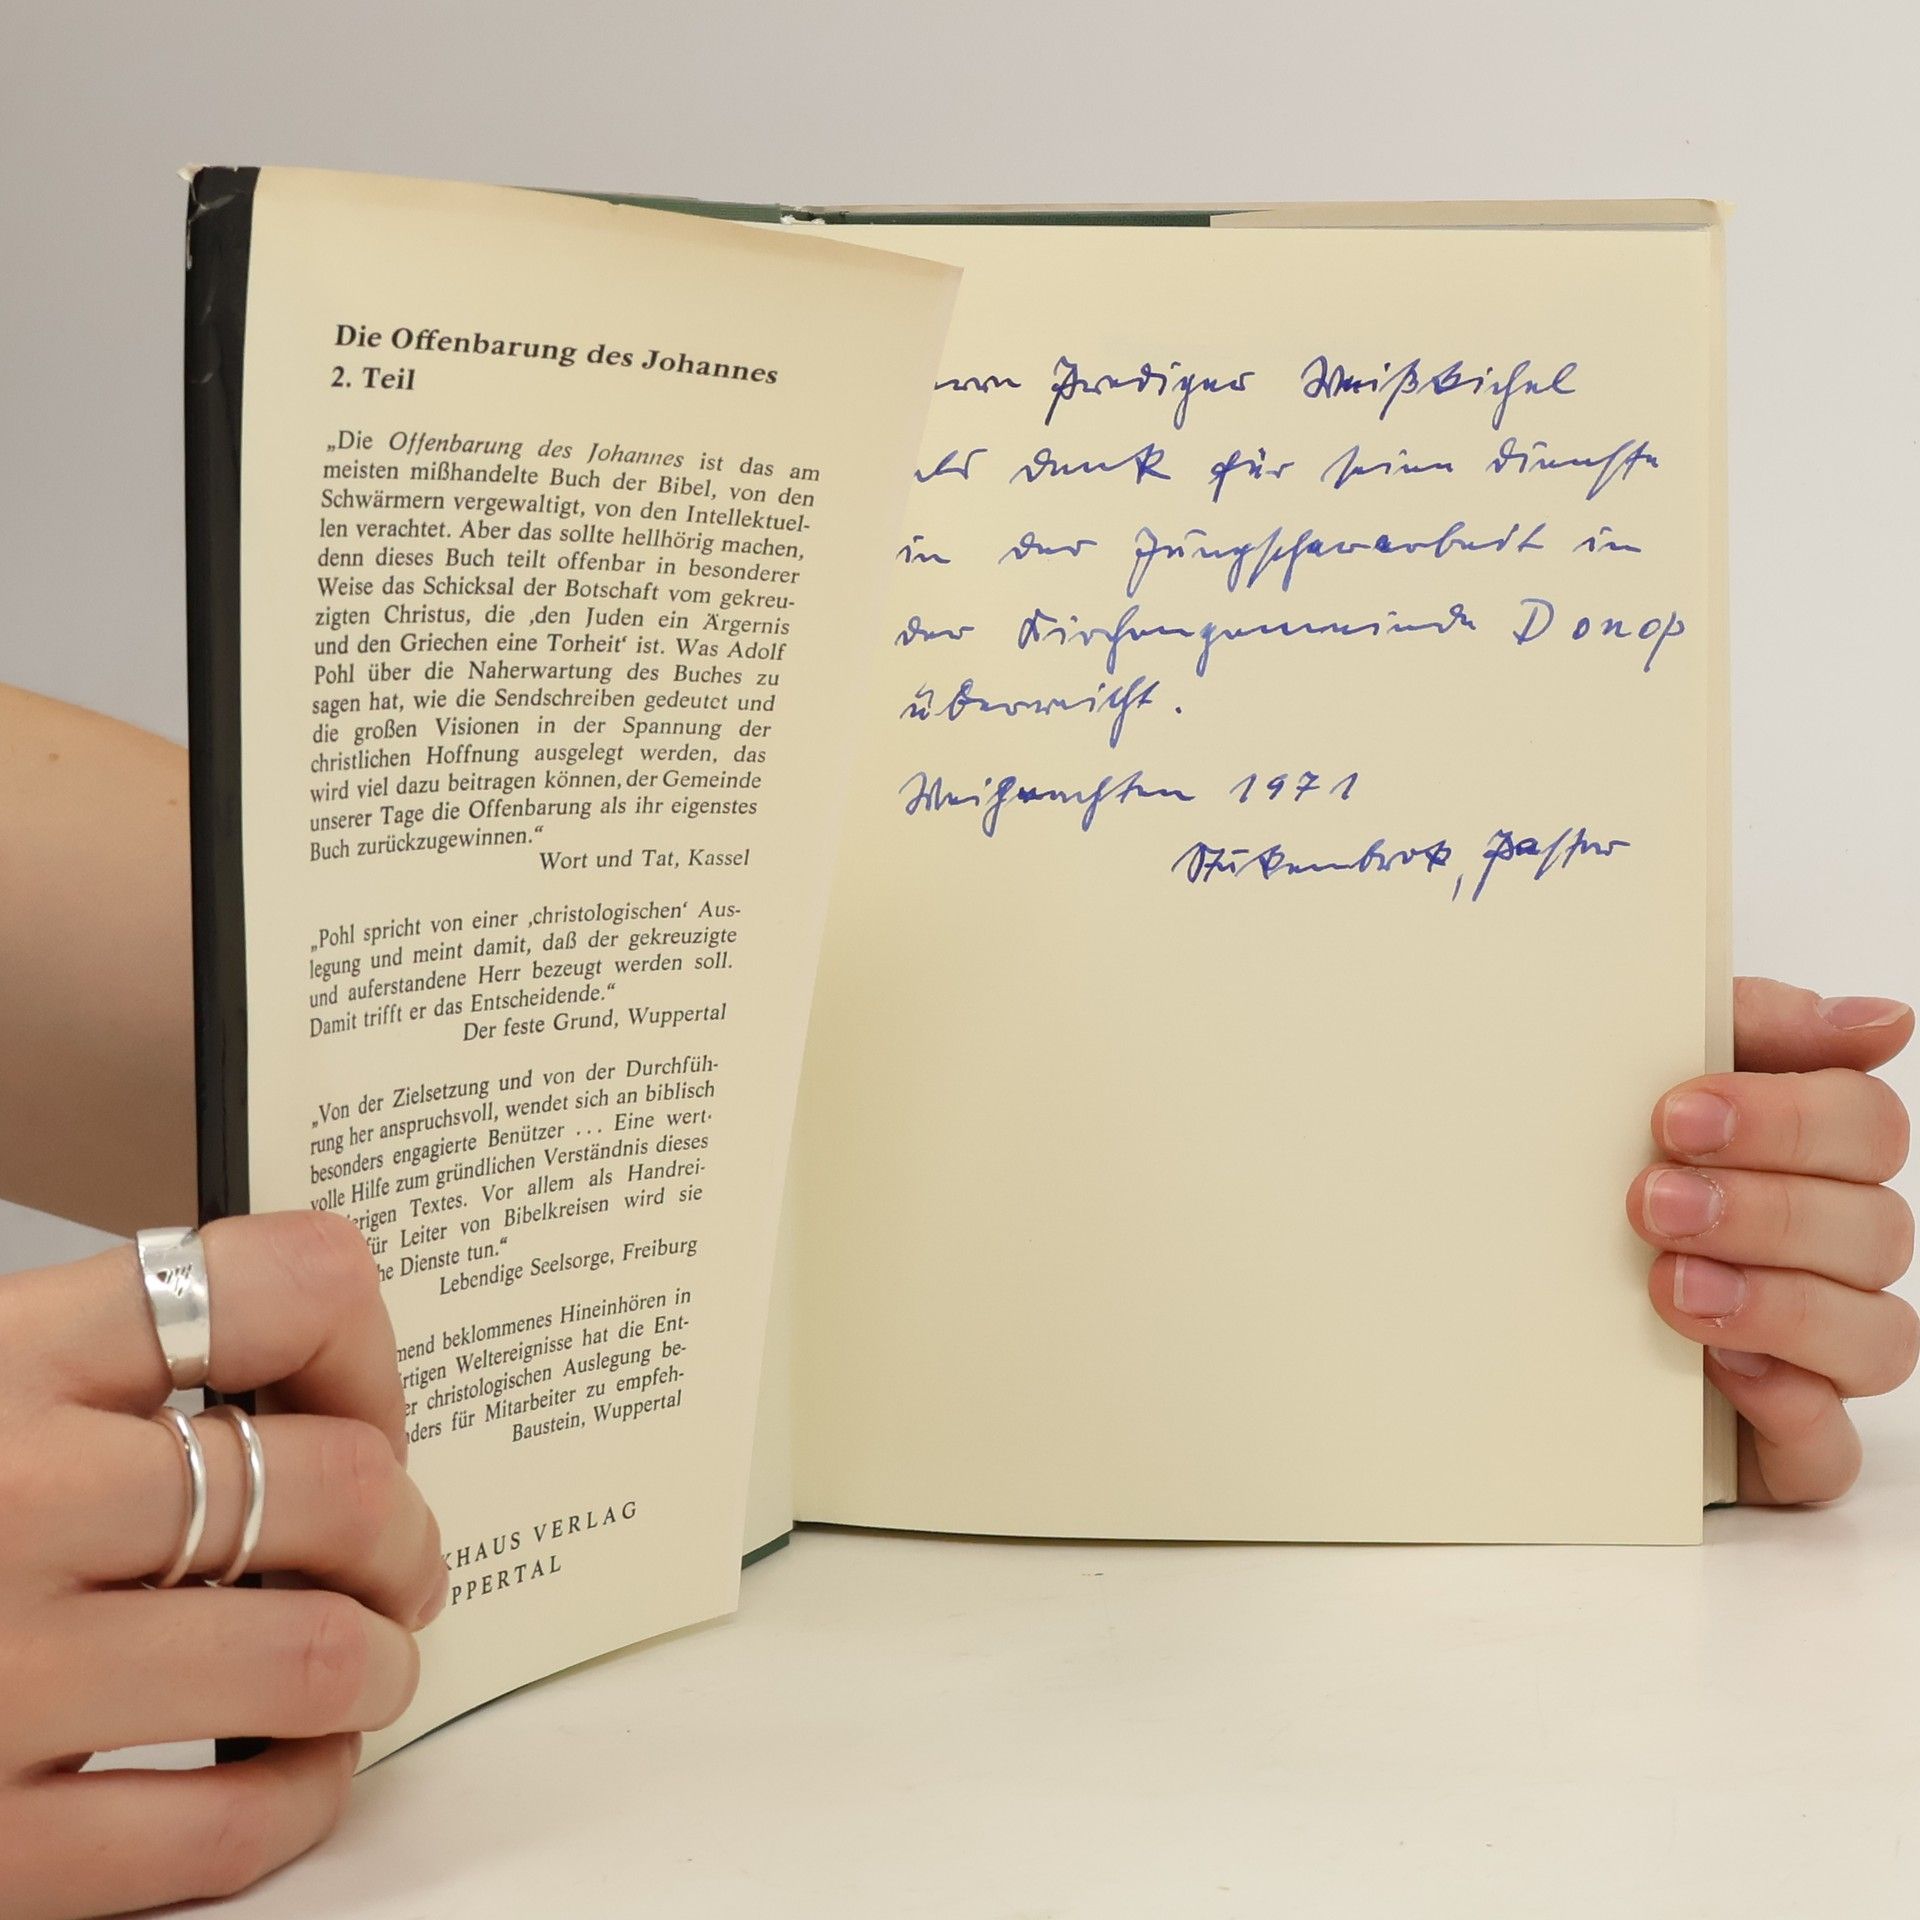 Die Offenbarung des Johannes
2. Teil
„Die Offenbarung des Johannes ist das am
meisten mißhandelte Buch der Bibel, von den
Schwärmern vergewaltigt, von den Intellektuel-
len verachtet. Aber das sollte hellhörig machen,
denn dieses Buch teilt offenbar in besonderer
Weise das Schicksal der Botschaft vom gekreu-
zigten Christus, die ‚den Juden ein Ärgernis
und den Griechen eine Torheit‘ ist. Was Adolf
Pohl über die Naherwartung des Buches zu
sagen hat, wie die Sendschreiben gedeutet und
die großen Visionen in der Spannung der
christlichen Hoffnung ausgelegt werden, das
wird viel dazu beitragen können, der Gemeinde
unserer Tage die Offenbarung als ihr eigenstes
Buch zurückzugewinnen.“
Wort und Tat, Kassel
„Pohl spricht von einer ‚christologischen‘ Aus-
legung und meint damit, daß der gekreuzigte
und auferstandene Herr bezeugt werden soll.
Damit trifft er das Entscheidende.“
Der feste Grund, Wuppertal
„Von der Zielsetzung und von der Durchfüh-
rung her anspruchsvoll, wendet sich an biblisch
besonders engagierte Benützer ... Eine wert-
volle Hilfe zum gründlichen Verständnis dieses
erigen Textes. Vor allem als Handrei-
für Leiter von Bibelkreisen wird sie
he Dienste tun.“
Lebendige Seelsorge, Freiburg
mend beklommenes Hineinhören in
rtigen Weltereignisse hat die Ent-
er christologischen Auslegung be-
nders für Mitarbeiter zu empfeh-
Baustein, Wuppertal
KHAUS VERLAG
PPERTAL
errn Prediger Weißkichel
als Dank für seine Dienste
in der Jungschararbeit in
der Kirchengemeinde Donop
überreicht.
Weihnachten 1971
Stukenbrok, Pastor